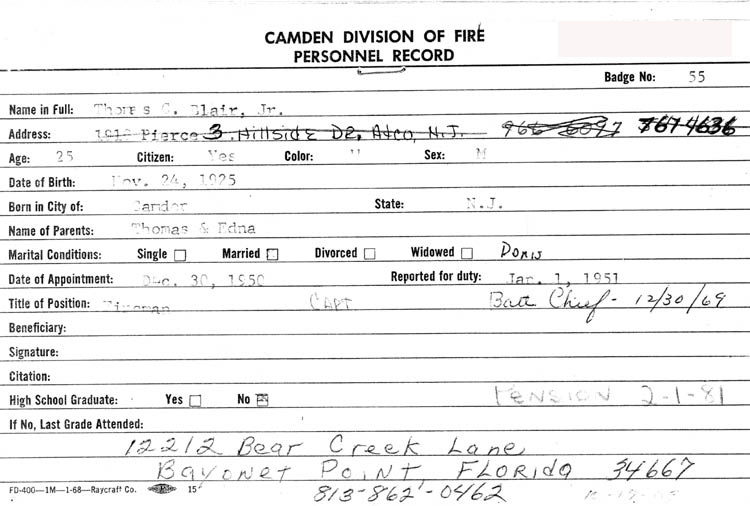 CAMDEN DIVISION OF FIRE
PERSONNEL RECORD
Badge No: 55
Name in Full: Thomas C. Blair, Jr.
Address: 1212 Pierce 3 Hillside DR, Atco, N.J. 966 6097 767 4636
Age: 25 Citizen: Yes Color: Sex: M
Date of Birth: Nov. 24, 1925
Born in City of: Camden State: N.J.
Name of Parents: Thomas & Edna
Marital Conditions: Single Married Divorced Widowed Doris
Date of Appointment: Dec. 30, 1950 Reported for duty: Jan. 1, 1951
Title of Position: Fireman CAPT Batt Chief - 12/30/69
Beneficiary:
Signature:
Citation:
High School Graduate: Yes No PENSION 2-1-81
If No, Last Grade Attended:
12212 Bear Creek Lane,
Bayonet Point, FLORIDA 34667
FD-400—1M—1-68—Raycraft Co. 15 813-862-0462